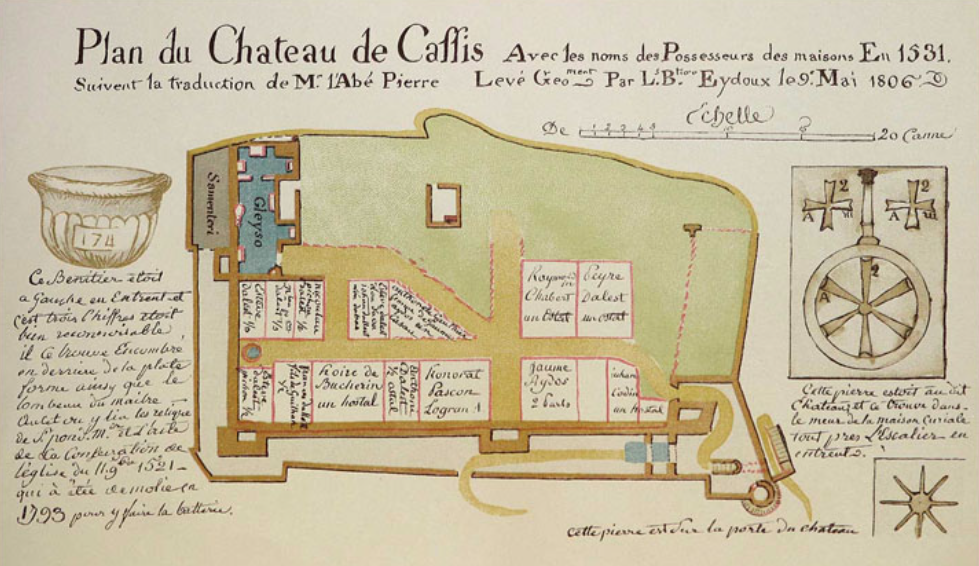 Plan du Chateau de Cassis Avec les noms des Possesseurs des maisons En 1531.
Suivent la traduction de Mr. l'Abé Pierre Levé Géoment Par L. B. Eydoux le 9. Mai 1806
Echelle
De 1 2 3 4 5 20 Canne
174
Ce Benitier étoit
a Gauche en Entrent et
c'est trois Chiffres étoit
bien reconoisable
il ce trouve Encombré
en derriere de la plate
forme ainsy que le
tombeau du maitre
Autel ou y lia les relique
de St. pons. Mr. et l'acte
de la Consecration de
l'église du 11. 9bre 1521
qui à étée demolie en
1793 pour y faire la batterie.
Sementeri
Gleyso
Esteve
dalest 1/2
Raymon
Chabert
un ostal
Peyre
Dalest
un ostal
Hoire de
Bucherin
un hostal
Dalest
1/2 ostal
Honorat
Pascon
Logran
Jaume
Aydos
2 Parts
Codin
un hostal
2 2
A A
2
A
Cette pierre estoit audit
Chateau et ce trouve dans
le meur de la maison Curiale
tout pres L'Escalier en
entrent
cette pierre est sur la porte du chateau